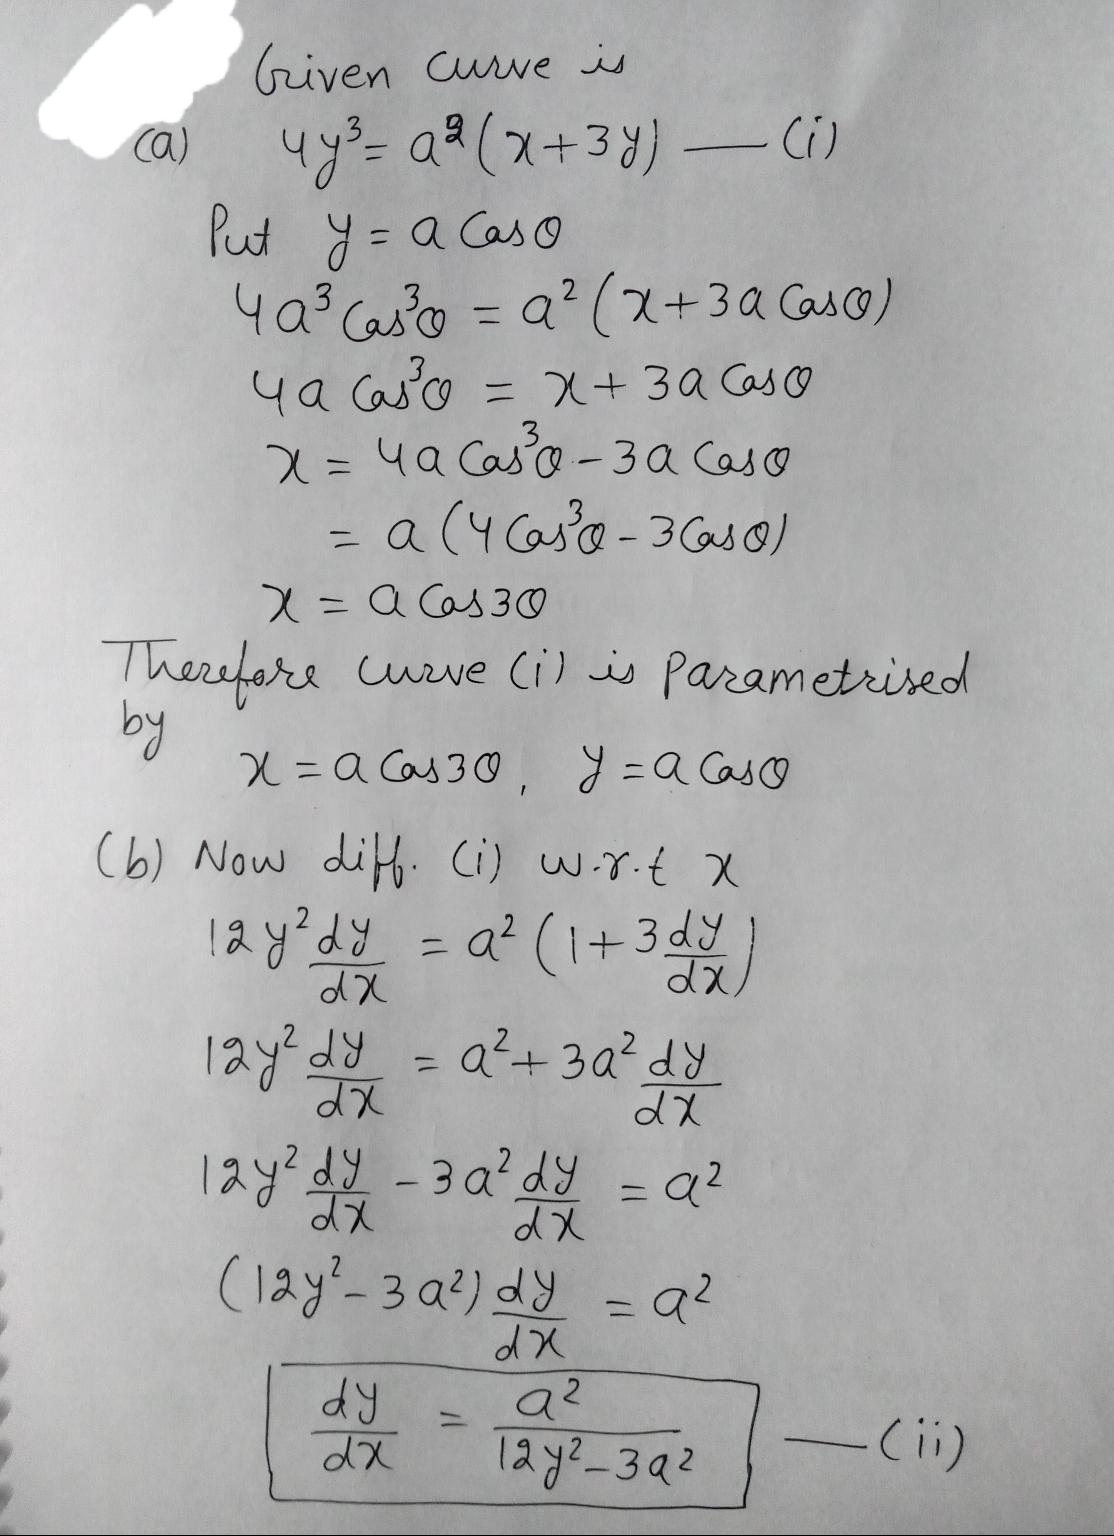 Given curve is
(a) 4y³ = a²(x+3y) — (i)
Put y = a Cosθ
4a³ Cos³θ = a²(x+3a Cosθ)
4a Cos³θ = x + 3a Cosθ
x = 4a Cos³θ - 3a Cosθ
= a (4 Cos³θ - 3 Cosθ)
x = a Cos3θ
Therefore curve (i) is Parametrised
by
x = a Cos3θ, y = a Cosθ
(b) Now diff. (i) w.r.t x
12y² dy/dx = a² (1 + 3 dy/dx)
12y² dy/dx = a² + 3a² dy/dx
12y² dy/dx - 3a² dy/dx = a²
(12y² - 3a²) dy/dx = a²
dy/dx = a²/(12y² - 3a²) — (ii)